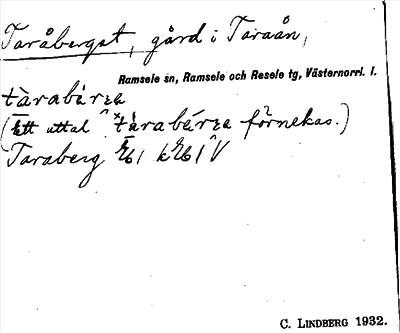 Taråberget, gård i Taraån,
Ramsele sn, Ramsele och Resele tg, Västernorrl. l.
tàrabárʒa
(Ett uttal tàrabárʒa förnekas.)
Taraberg
C. LINDBERG 1932.